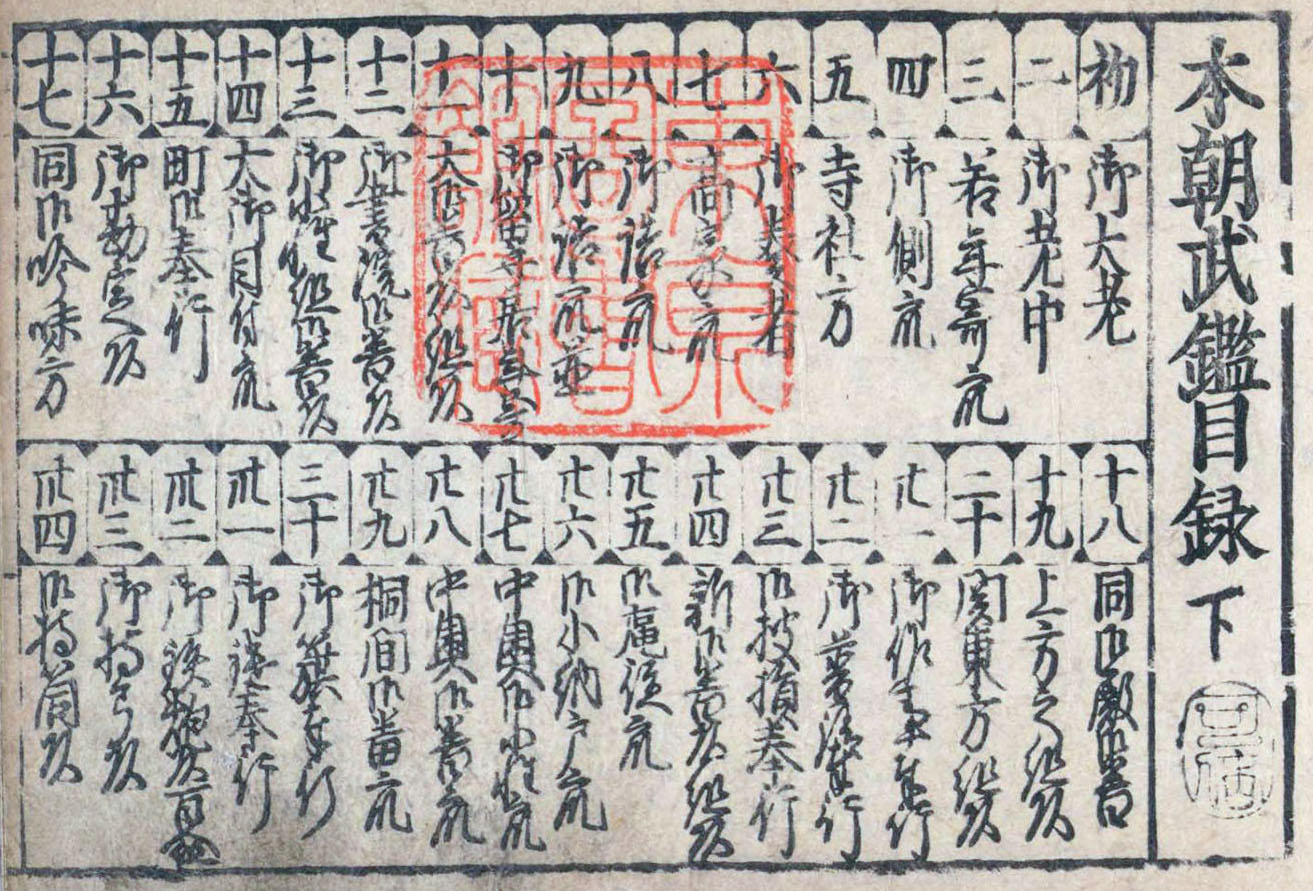 本朝武鑑目録 下
初 御大老
二 御老中
三 若年寄衆
四 御側衆
五 寺社方
六 御奏者
七 高家衆
八 御詰衆
九 御詰衆並
十 御留守居年寄
十一 大御番頭組頭
十二 御書院御番頭
十三 御小性組御番頭
十四 大御目付衆
十五 町御奉行
十六 御勘定頭
十七 同御吟味方
十八 同御殿御番
十九 上方之組頭
二十 関東方組頭
廿一 御作事奉行
廿二 御普請奉行
廿三 御破損奉行
廿四 新御番頭組頭
廿五 御庭役衆
廿六 御小納戸衆
廿七 中奥御小性衆
廿八 中奥御番衆
廿九 桐間御番衆
三十 御簱奉行
卅一 御鑓奉行
卅二 御鉄砲頭百
卅三 御持弓頭
卅四 御持筒頭